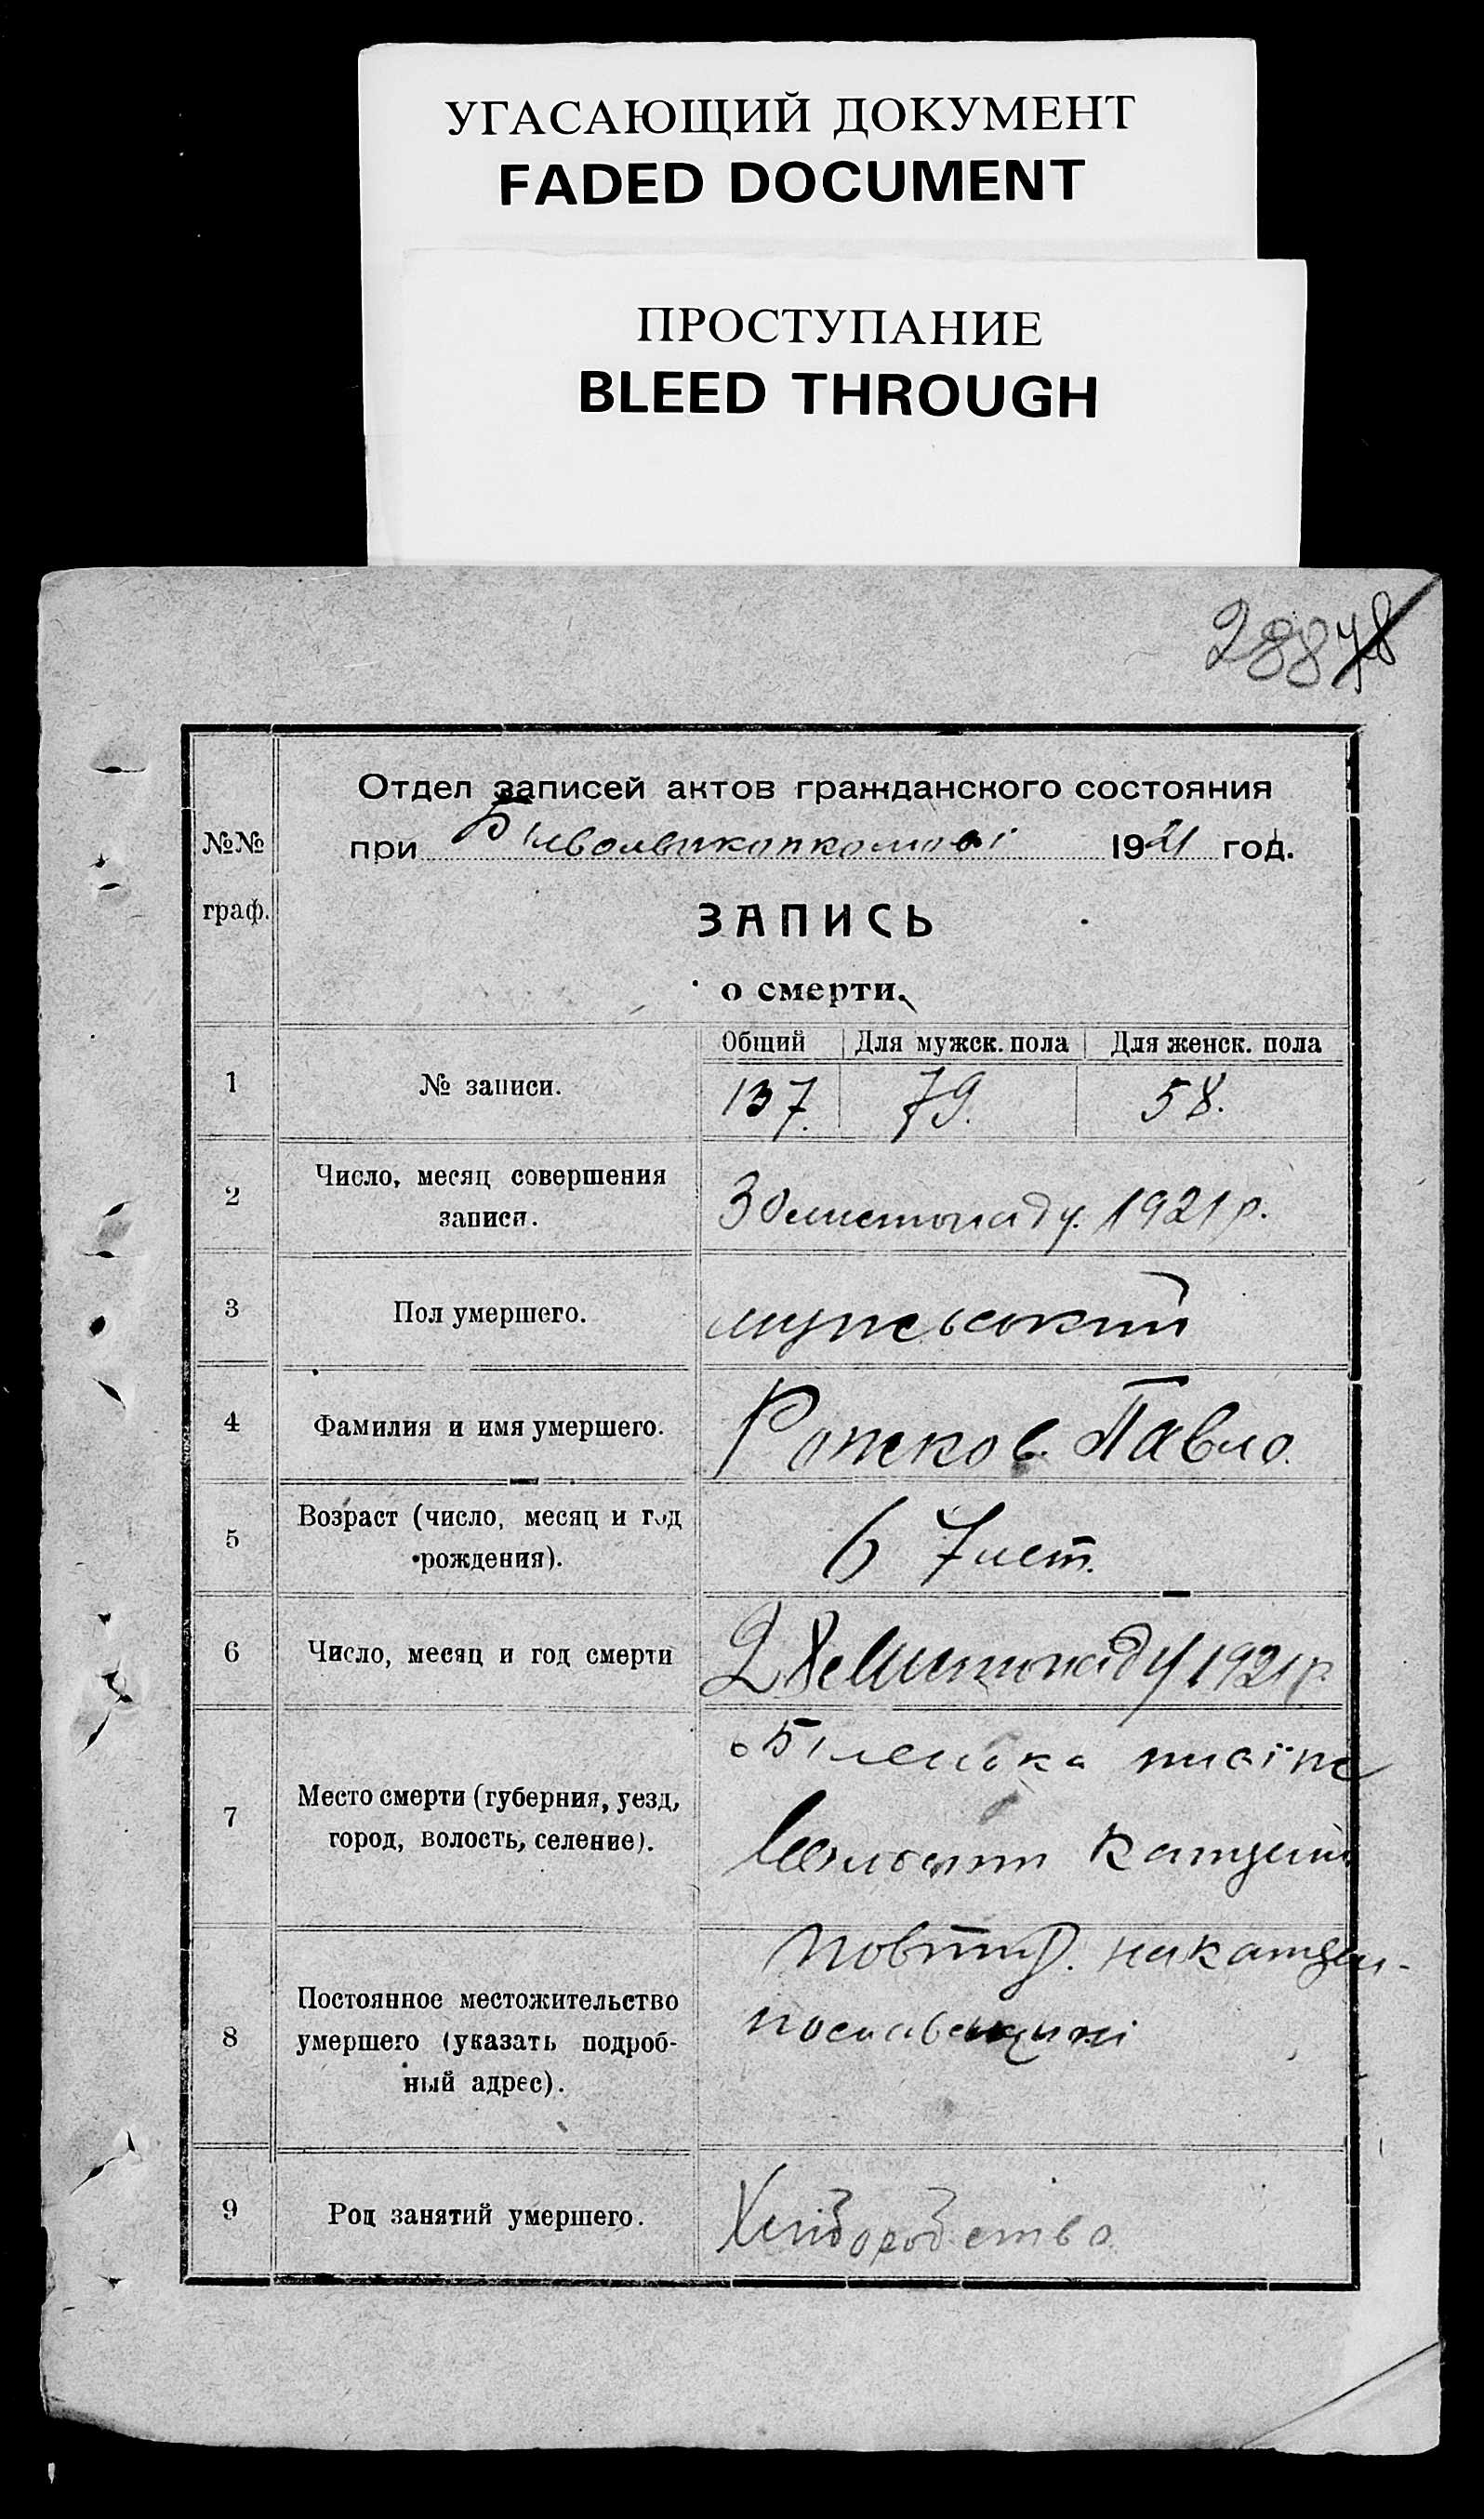 УГАСАЮЩИЙ ДОКУМЕНТ
FADED DOCUMENT
ПРОСТУПАНИЕ
BLEED THROUGH
288 78
Отдел записей актов гражданского состояния
№№ при 1921 год.
граф.
ЗАПИСЬ
о смерти.
Общий Для мужск. пола Для женск. пола
1 № записи. 137. 79. 58.
2 Число, месяц совершения
записи. 30 листопаду 1921 р.
3 Пол умершего. мужеський
4 Фамилия и имя умершего. Рожков Павло.
5 Возраст (число, месяц и год
рождения). 67 лет.
6 Число, месяц и год смерти 28 Листопаду 1921 р.
7 Место смерти (губерния, уезд,
город, волость, селение). Біленька
волости
8 Постоянное местожительство
умершего (указать подроб-
ный адрес).
9 Род занятий умершего. Хлібородство